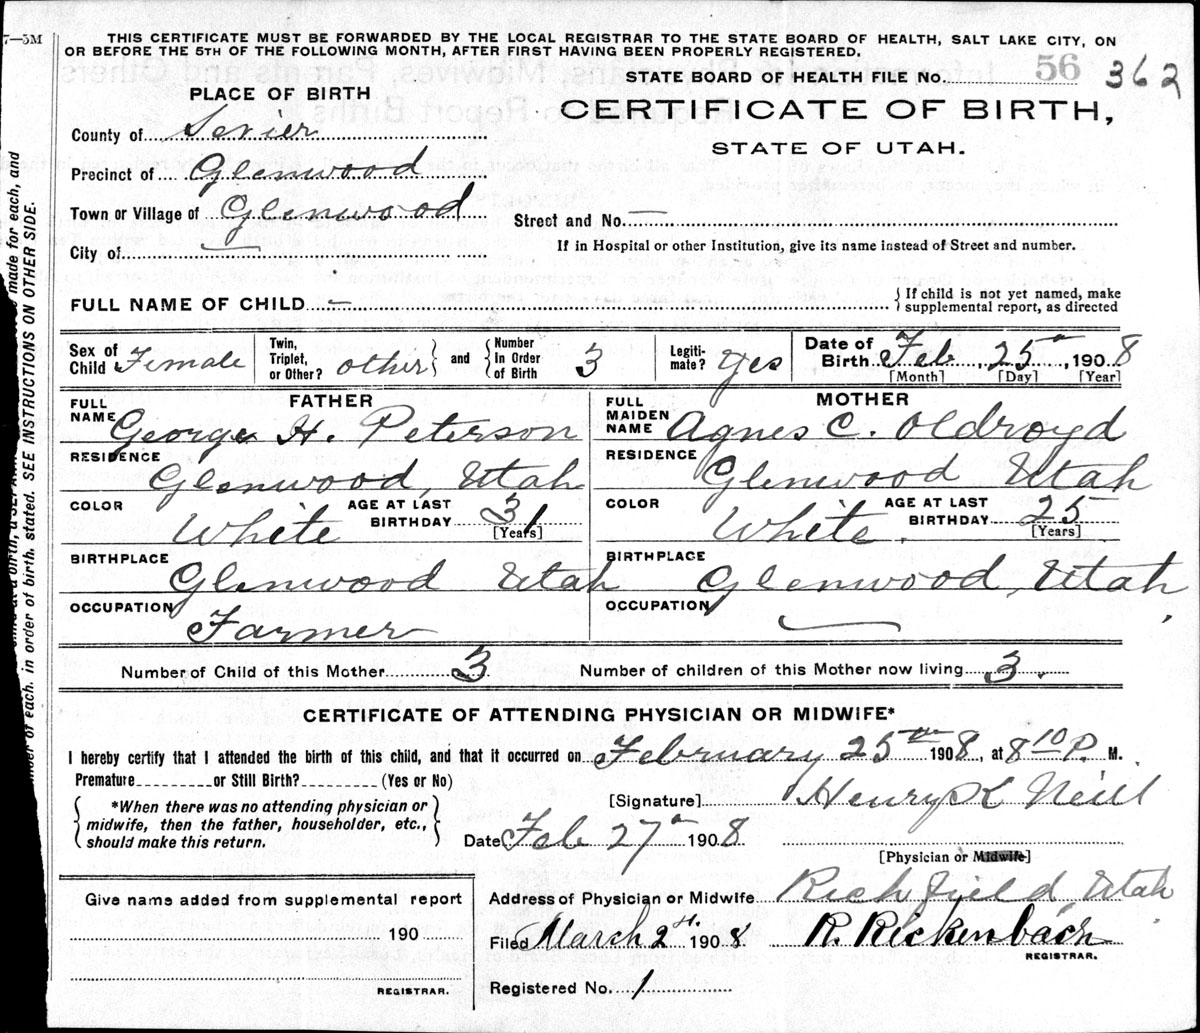 7—5M
THIS CERTIFICATE MUST BE FORWARDED BY THE LOCAL REGISTRAR TO THE STATE BOARD OF HEALTH, SALT LAKE CITY, ON
OR BEFORE THE 5TH OF THE FOLLOWING MONTH, AFTER FIRST HAVING BEEN PROPERLY REGISTERED.
STATE BOARD OF HEALTH FILE No. 56 362
PLACE OF BIRTH
CERTIFICATE OF BIRTH,
STATE OF UTAH.
County of Sevier
Precinct of Glenwood
Town or Village of Glenwood
Street and No. —
City of —
If in Hospital or other Institution, give its name instead of Street and number.
FULL NAME OF CHILD — { If child is not yet named, make supplemental report, as directed
Sex of Child Female Twin, Triplet, or Other? other } and { Number In Order of Birth 3 Legiti-mate? yes Date of Birth Feb 25th, 1908
[Month] [Day] [Year]
FATHER MOTHER
FULL NAME George H. Peterson FULL MAIDEN NAME Agnes C. Oldroyd
RESIDENCE Glenwood, Utah RESIDENCE Glenwood Utah
COLOR White AGE AT LAST BIRTHDAY 31 [Years] COLOR White. AGE AT LAST BIRTHDAY 25 [Years]
BIRTHPLACE Glenwood Utah BIRTHPLACE Glenwood, Utah
OCCUPATION Farmer OCCUPATION —
Number of Child of this Mother 3 Number of children of this Mother now living 3.
CERTIFICATE OF ATTENDING PHYSICIAN OR MIDWIFE*
I hereby certify that I attended the birth of this child, and that it occurred on February 25th 1908, at 8 10 P. M.
Premature or Still Birth? (Yes or No)
{ *When there was no attending physician or midwife, then the father, householder, etc., should make this return. }
[Signature] Henry K Neill
Date Feb 27th 1908
[Physician or Midwife]
Address of Physician or Midwife Richfield, Utah
Filed March 2d. 1908 R. Rickenbach
REGISTRAR.
Registered No. 1
Give name added from supplemental report
190
REGISTRAR.
made for each, and
in order of birth. stated. SEE INSTRUCTIONS ON OTHER SIDE.